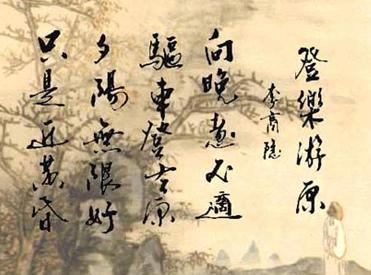 登樂游原
李商隱
向晚意不適
驅車登古原
夕陽無限好
只是近黃昏